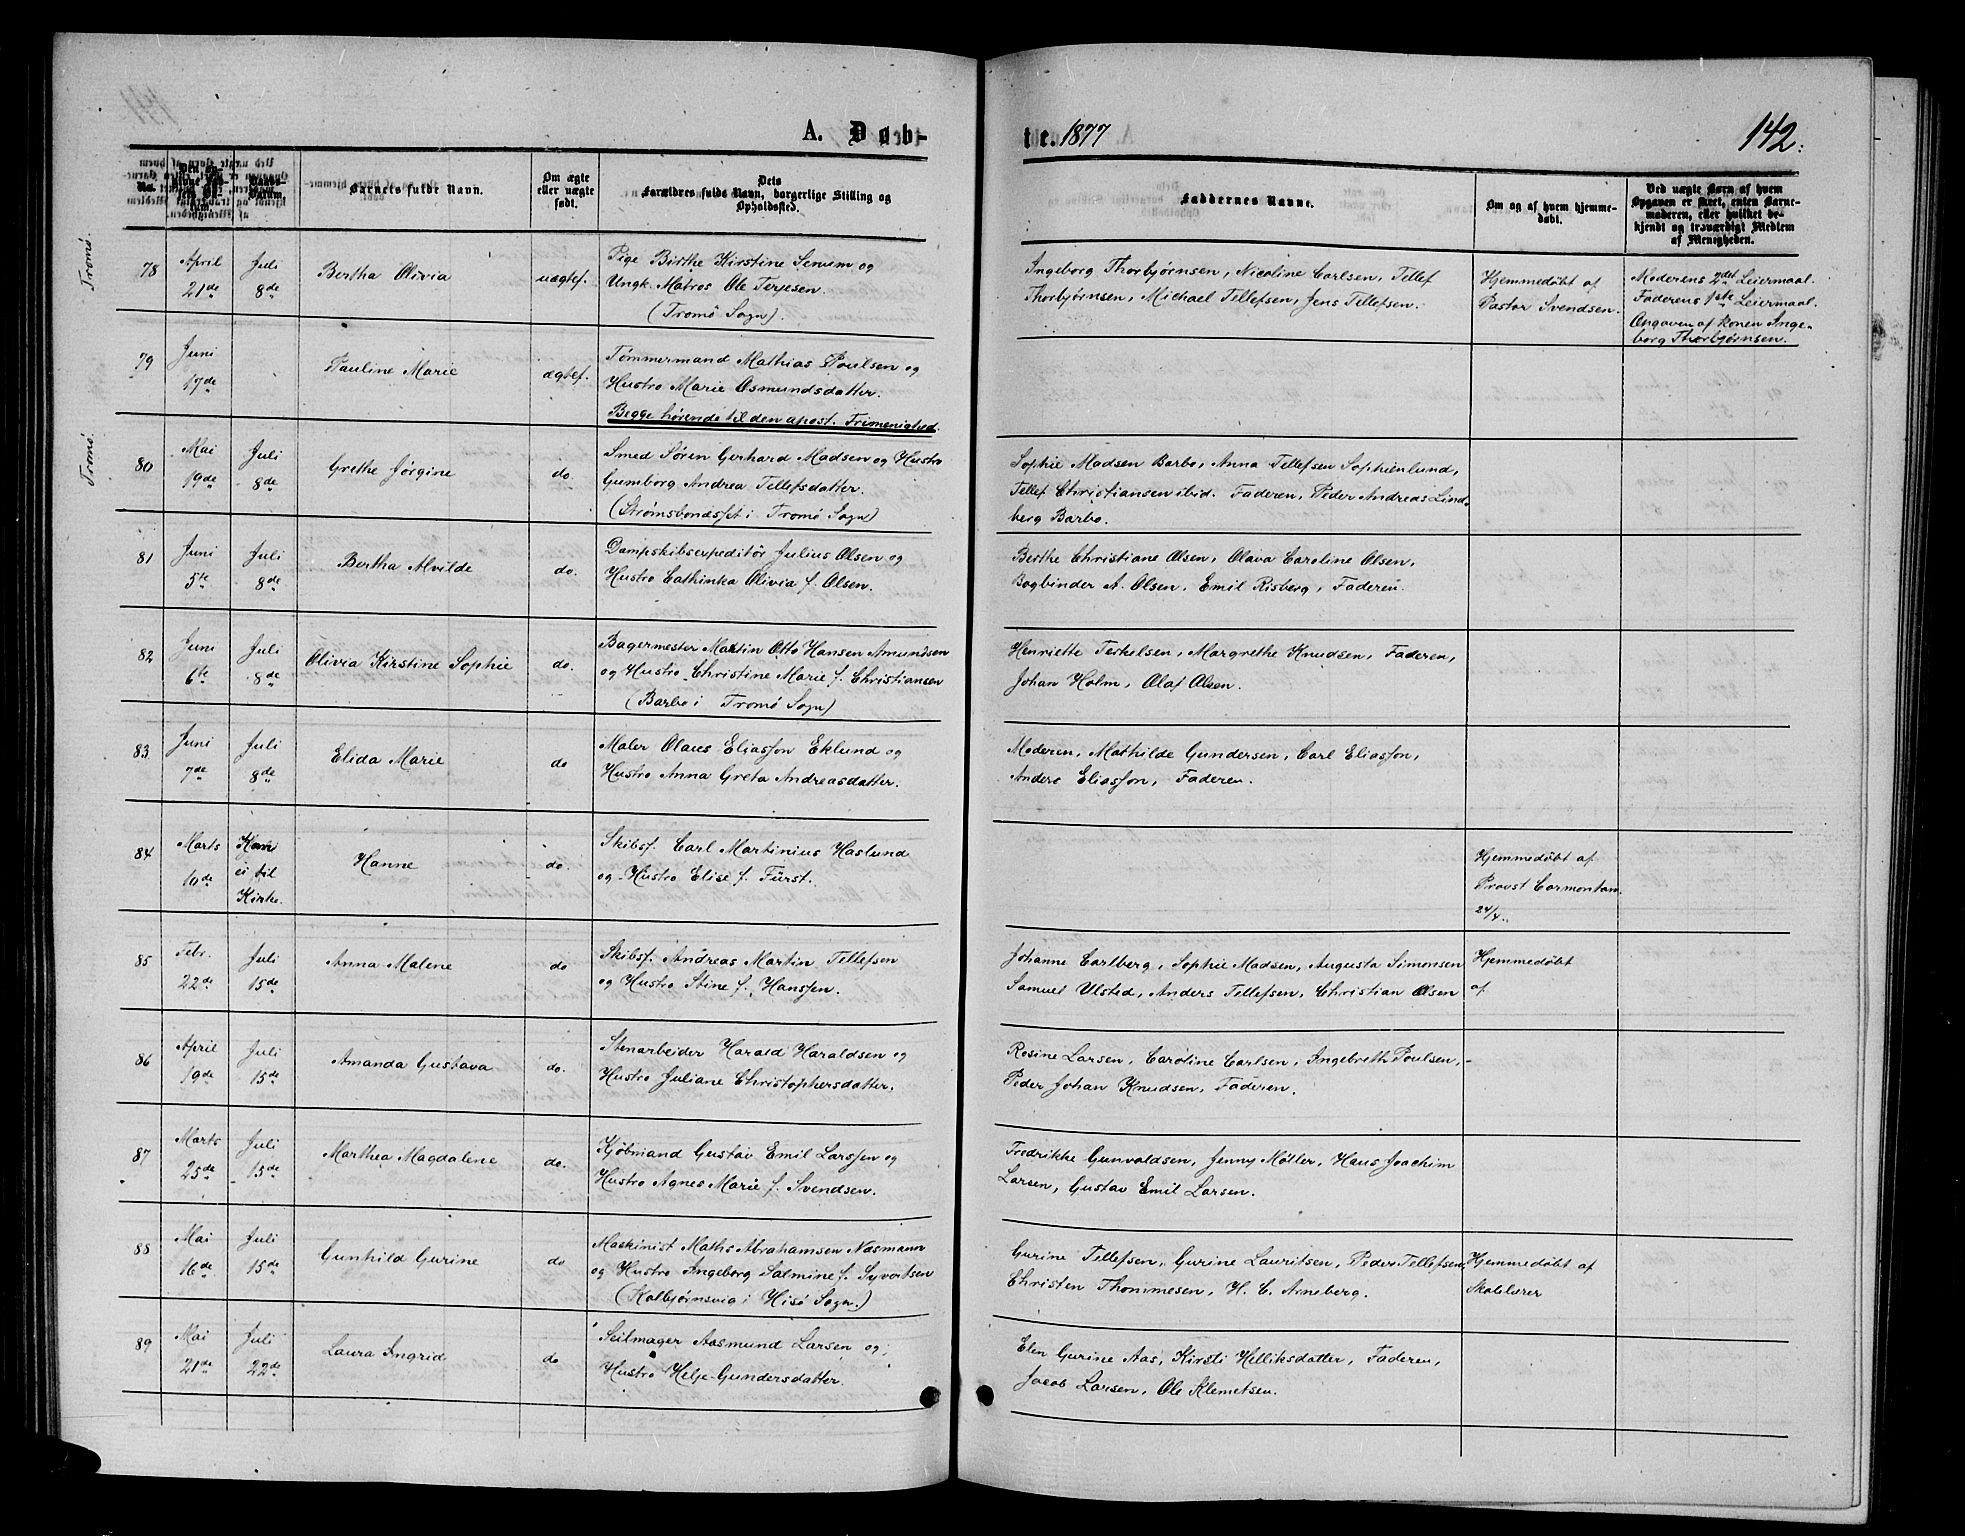 A. Døb-
te. 1877
142.
No.
Barnets fulde Navn.
Om ægte eller uægte født.
Dets Forældres fulde Navn, borgerlige Stilling og Opholdssted.
Faddernes Navne.
Om og af hvem hjemmedøbt.
Ved uægte Børn af hvem Opgaven er skeet, enten Barnemoderen, eller hvilket bekjendt og troværdigt Medlem af Menigheden.
Tromø.
78
April 21de
Juli 8de
Bertha Olivia
uægtef.
Pige Birthe Kirstine Senum og
Ungk. Matros Ole Terjesen.
(Tromø Sogn).
Ingeborg Thorbjørnsen, Nicoline Carlsen, Tellef
Thorbjørnsen, Michael Tellefsen, Jens Tellefsen.
Hjemmedøbt af
Pastor Svendsen.
Moderens 2det Leiermaal.
Faderens 1ste Leiermaal.
Opgaven af Konen Inge-
borg Thorbjørnsen.
79
Juni 17de
Pauline Marie
ægtef.
Tømmermand Mathias Poulsen og
Hustro Marie Osmundsdatter.
Begge hørende til den apost. Frimenighed.
Tromø.
80
Mai 19de
Juli 8de
Grethe Jørgine
do.
Smed Søren Gerhard Madsen og Hustro
Gumborg Andrea Tellefsdatter.
(Strømsbonæsset i Tromø Sogn)
Sophie Madsen Barbo, Anna Tellefsen Sophienlund,
Tellef Christiansen ibid. Faderen, Peder Andreas Lind-
berg Barbo.
81
Juni 5te
Juli 8de
Bertha Alvilde
do.
Dampskibsexpeditør Julius Olsen og
Hustro Cathinka Olivia f. Olsen.
Berthe Christiane Olsen, Olava Caroline Olsen,
Bogbinder A. Olsen, Emil Risberg, Faderen.
82
Juni 6te
Juli 8de
Olivia Kirstine Sophie
do.
Bagermester Martin Otto Hansen Amundsen
og Hustro Christine Marie f. Christiansen
(Barbo i Tromø Sogn)
Henriette Terkelsen, Margrethe Knudsen, Faderen,
Johan Holm, Olaf Olsen.
83
Juni 7de
Juli 8de
Elida Marie
do
Maler Olaus Eliasson Eklund og
Hustro Anna Greta Andreasdatter.
Moderen, Mathilde Gundersen, Carl Eliasson,
Anders Eliasson, Faderen.
84
Marts 10de
Kom
ei til
Kirke.
Hanne
do.
Skibsf. Carl Martinius Haslund
og Hustro Elise f. Fürst.
Hjemmedøbt af
Provst Cormontan
24/4.
85
Febr. 22de
Juli 15de
Anna Malene
do
Skibsf. Andreas Martin Tellefsen
og Hustro Stine f. Hanssen.
Johanne Carlberg, Sophie Madsen, Augusta Simonsen
Samuel Ulsted, Anders Tellefsen, Christian Olsen
Hjemmedøbt
af
86
April 19de
Juli 15de
Amanda Gustava
do.
Stenarbeider Harald Haraldsen og
Hustro Juliane Christophersdatter.
Rosine Larsen, Caroline Carlsen, Ingebreth Poulsen,
Peder Johan Knudsen, Faderen.
87
Marts 25de
Juli 15de
Marthea Magdalene
do.
Kjøbmand Gustav Emil Larssen og
Hustro Agnes Marie f. Svendsen.
Fredrikke Gunvaldsen, Jenny Møller, Hans Joachim
Larsen, Gustav Emil Larsen.
88
Mai 16de
Juli 15de
Gunhild Gurine
do
Maskinist Maths Abrahamsen Næsmann
og Hustro Ingeborg Salmine f. Syvertsen
(Kolbjørnsvig i Hisø Sogn.)
Gurine Tellefsen, Gurine Lauritsen, Peder Tellefsen,
Christen Thommesen, H. C. Arneberg.
Hjemmedøbt af
Skolelærer
89
Mai 21de
Juli 22de
Laura Ingrid
do
Seilmager Aasmund Larsen og
Hustro Helje Gundersdatter.
Elen Gurine Aas, Kirsti Helliksdatter, Faderen,
Jacob Larsen, Ole Klemetsen.